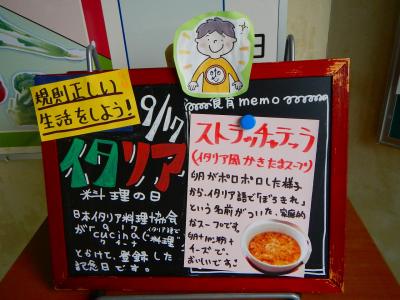 規則正しい
生活をしよう!
食育memo
9/17
イタリア
料理の日
日本イタリア料理協会
が"cucina(イタリア語で"料理"
クイナ
ともけて、登録した
記念日です。
ストラッチャテッラ
(イタリア風かきたまスープ)
卵がポロポロした様子
から、イタリア語で「ぼろきれ」
という名前がついた、家庭的
なスープです。
卵+パン粉+
チーズで、
おいしいですよ